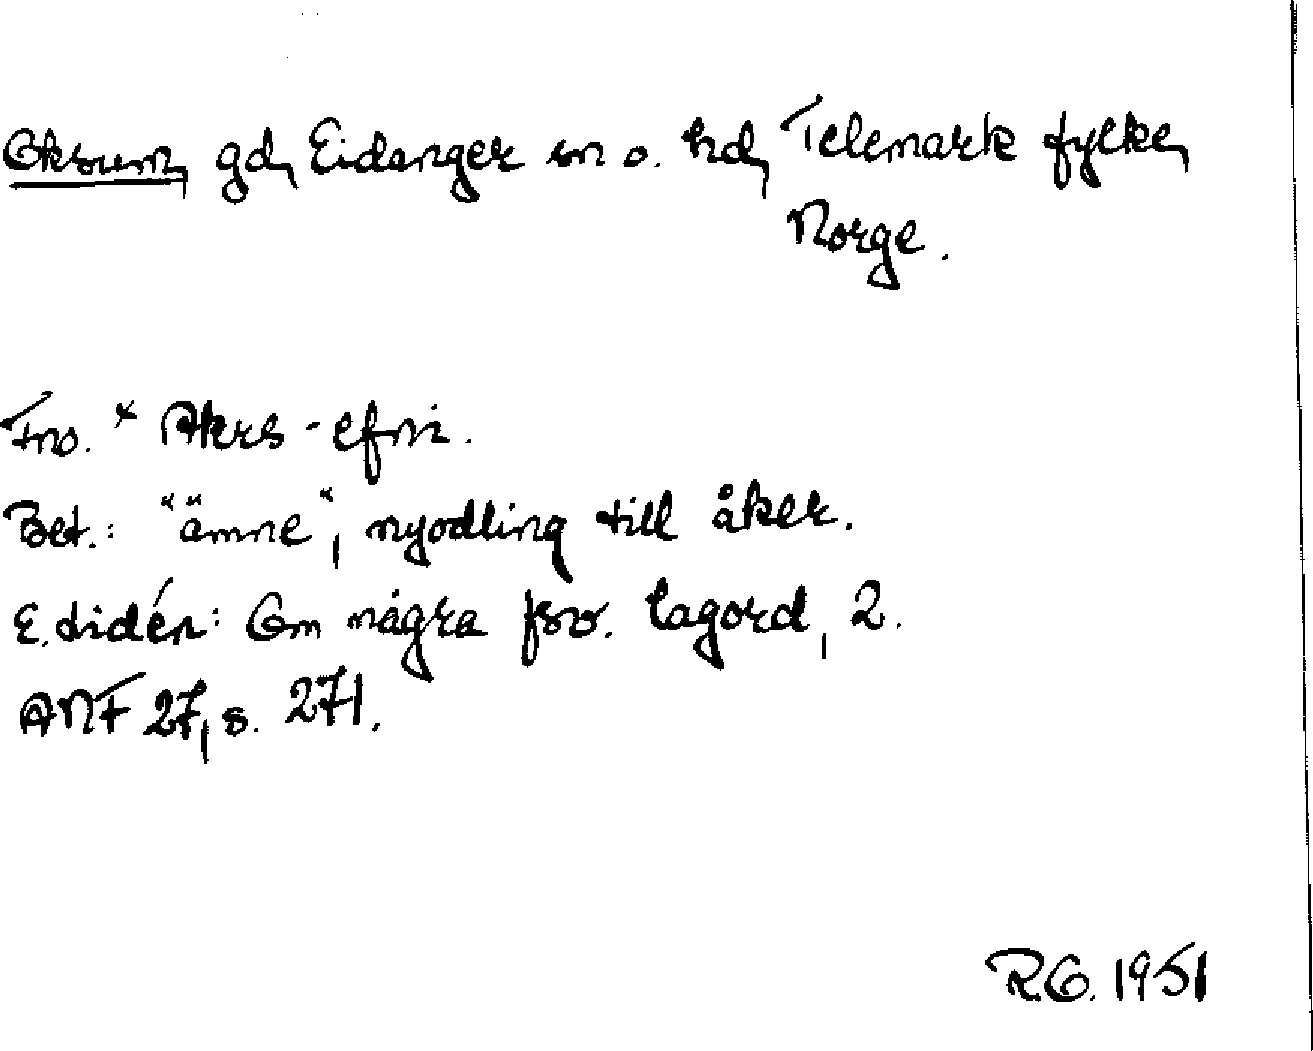 Oksum, gd, Eidanger sn o. hd, Telemark fylke,
Norge.
Fno. * Akrs-efni.
Bet.: "ämne", nyodling till åker.
E. Lidén: Om några fsv. lagord, 2.
ANF 27, s. 271.
RG. 1951